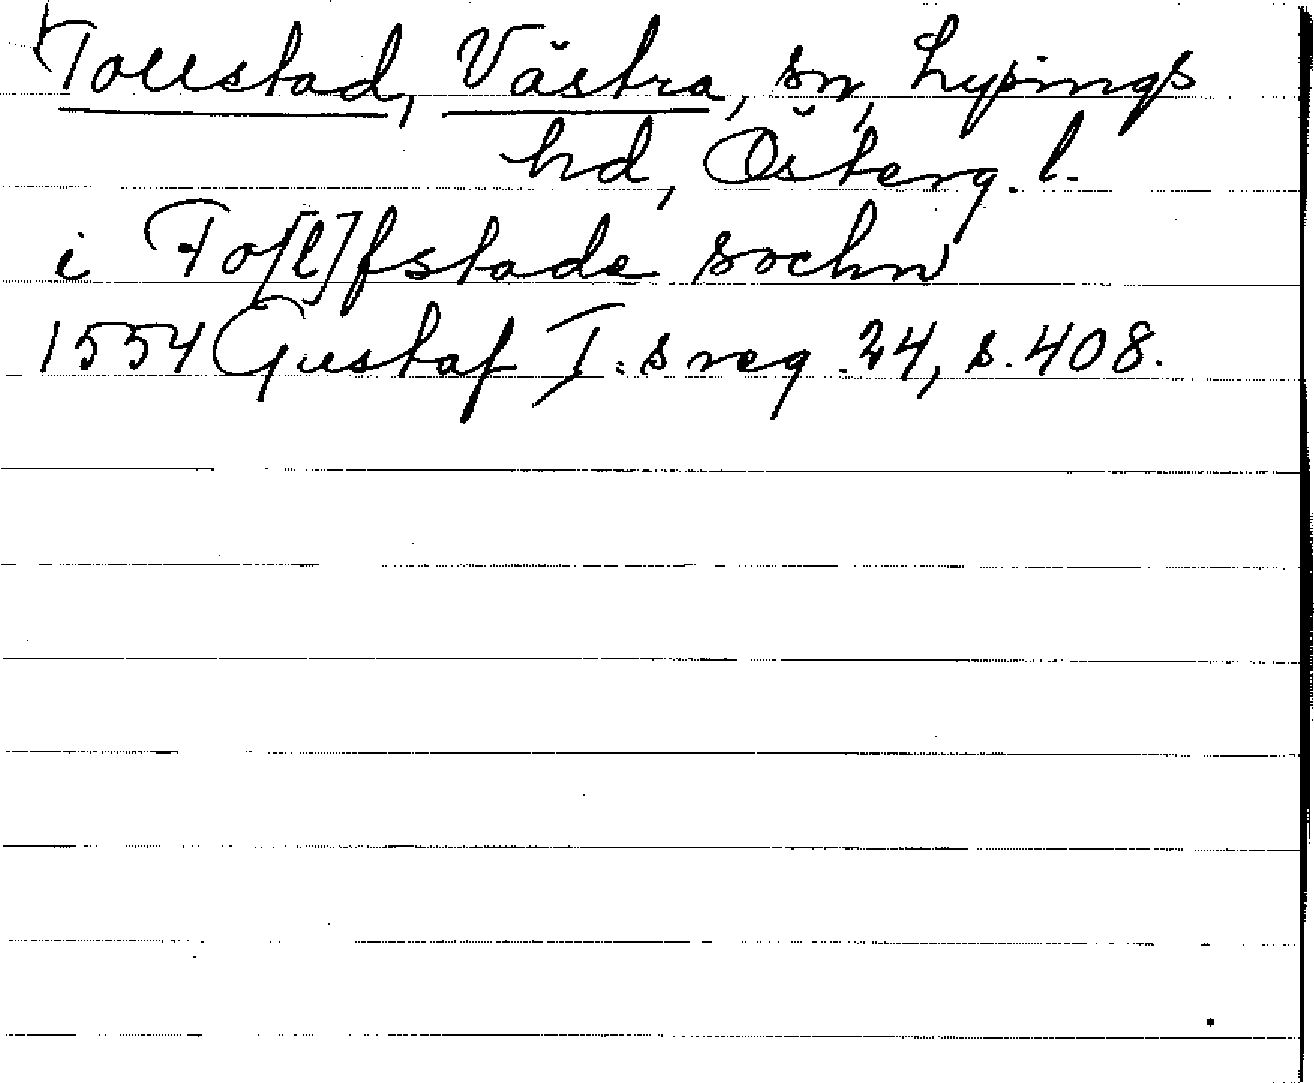 Tollstad, Västra, sn, Lysings
hd, Österg. l.
i To[l]fstade sochn
1554 Gustaf I:s reg. 24, s. 408.